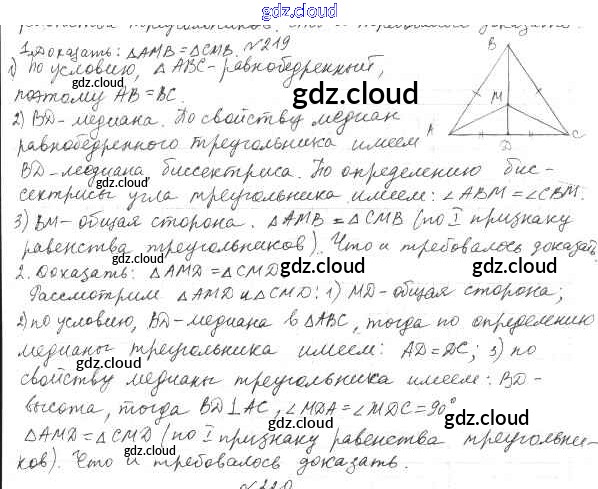 gdz.cloud
равенства треугольников. Что и требовалось доказать.
1. Доказать: △AMB = △CMB. №219
1) По условию, △ABC - равнобедренный,
поэтому AB = BC.
gdz.cloud
2) BD - медиана. По свойству медиан
равнобедренного треугольника имеем
gdz.cloud
BD - медиана биссектриса. По определению бис-
сектрисы угла треугольника имеем: ∠ABM = ∠CBM.
gdz.cloud
3) BM - общая сторона. △AMB = △CMB (по I признаку
gdz.cloud gdz.cloud
равенства треугольников). Что и требовалось доказать.
2. Доказать: △AMD = △CMD
gdz.cloud gdz.cloud
Рассмотрим △AMD и △CMD: 1) MD - общая сторона;
2) по условию, BD - медиана в △ABC, тогда по определению
gdz.cloud
медианы треугольника имеем: AD = DC; 3) по
gdz.cloud
свойству медианы треугольника имеем: BD -
высота, тогда BD ⊥ AC, ∠MDA = ∠MDC = 90°
gdz.cloud
△AMD = △CMD (по I признаку равенства треугольни-
ков). Что и требовалось доказать.
gdz.cloud
№220
B
M
A
D
C